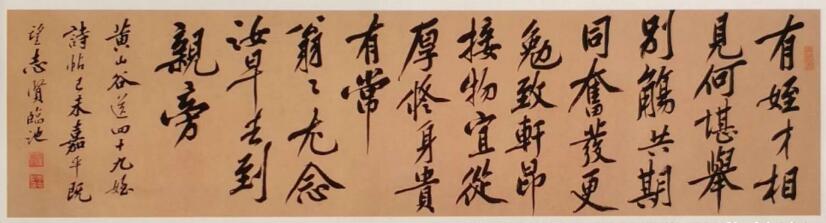 有姪才相
見何堪舉
別觴共期
同奮發更
勉致軒昂
接物宜從
厚修身貴
有常
翁〻尤念
汝早去到
親旁
黃山谷送四十九姪
詩帖己未嘉平既
望志賢臨池